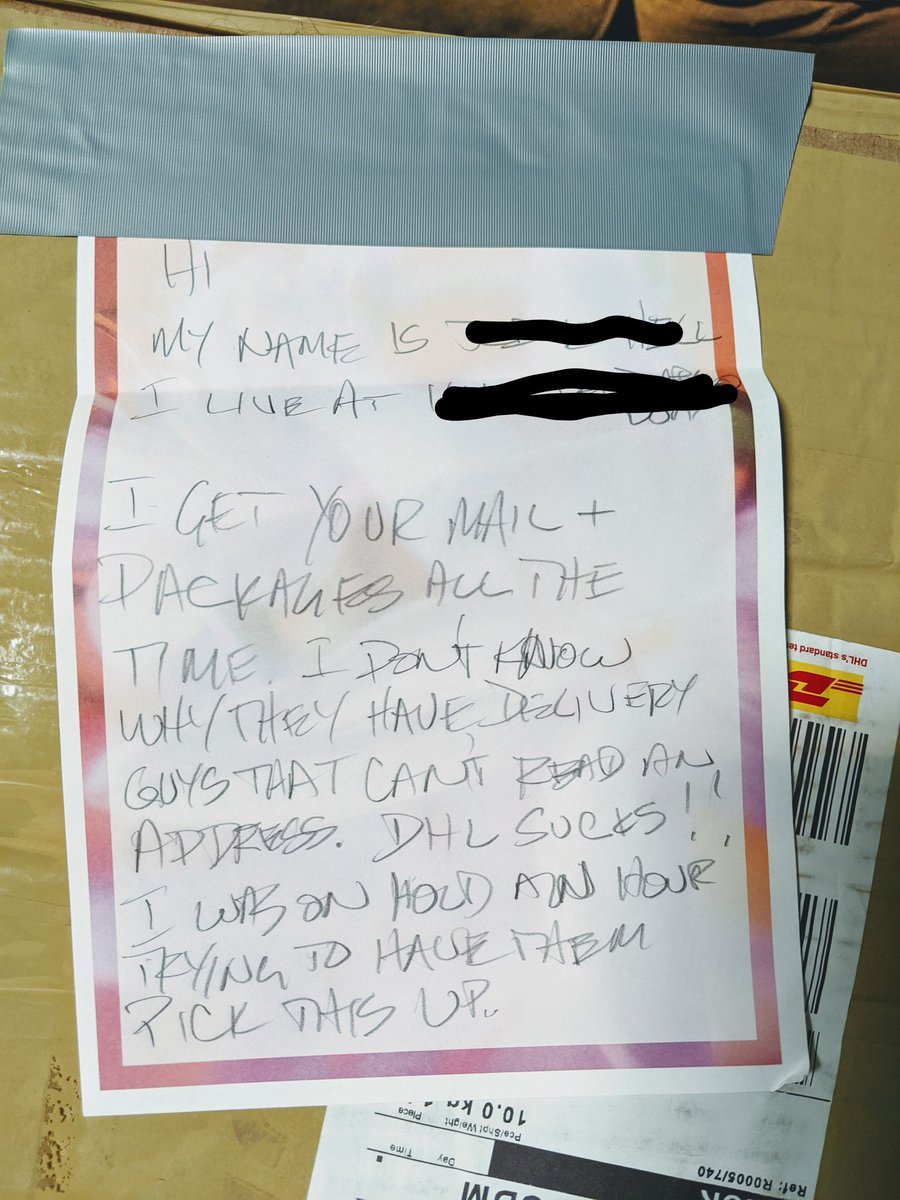 HI
MY NAME IS
I LIVE AT
I GET YOUR MAIL +
PACKAGES ALL THE
TIME. I DON'T KNOW
WHY THEY HAVE DELIVERY
GUYS THAT CAN'T READ AN
ADDRESS. DHL SUCKS!!
I WAS ON HOLD AN HOUR
TRYING TO HAVE THEM
PICK THIS UP.
DHL's standard
Ref: R0005/740
Day Time
Pce/Shpt Weight Place
10.0 kg